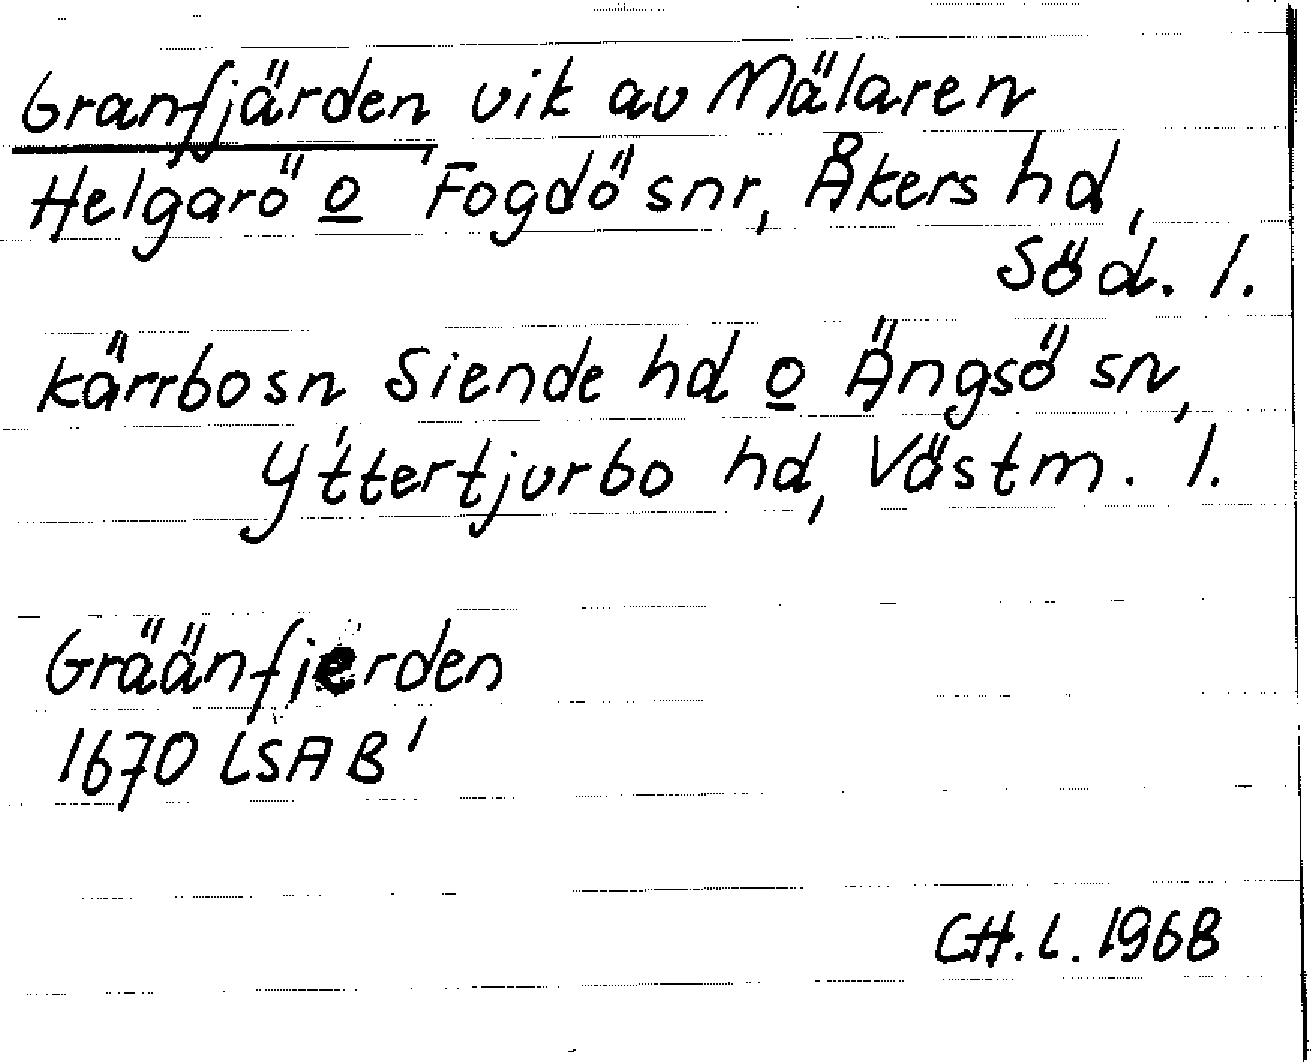 Granfjärden vik av Mälaren
Helgarö o Fogdö snr, Åkers hd,
Söd. l.
Kärrbo sn Siende hd o Ängsö sn,
Yttertjurbo hd, Västm. l.
Gräänfjerden
1670 LSA B'
CH.L. 1968